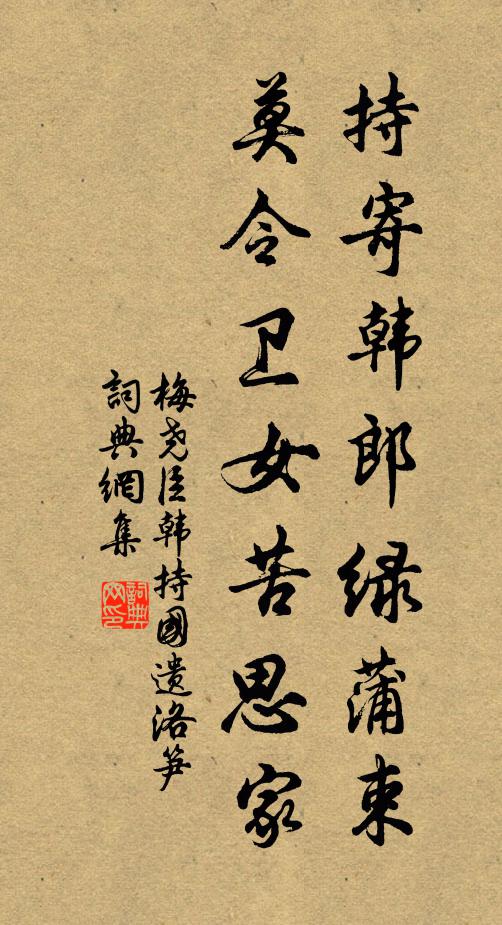 持寄韩郎绿蒲束
莫令卫女苦思家
梅尧臣韩持國遗洛笋
詞典網集
詞典网印